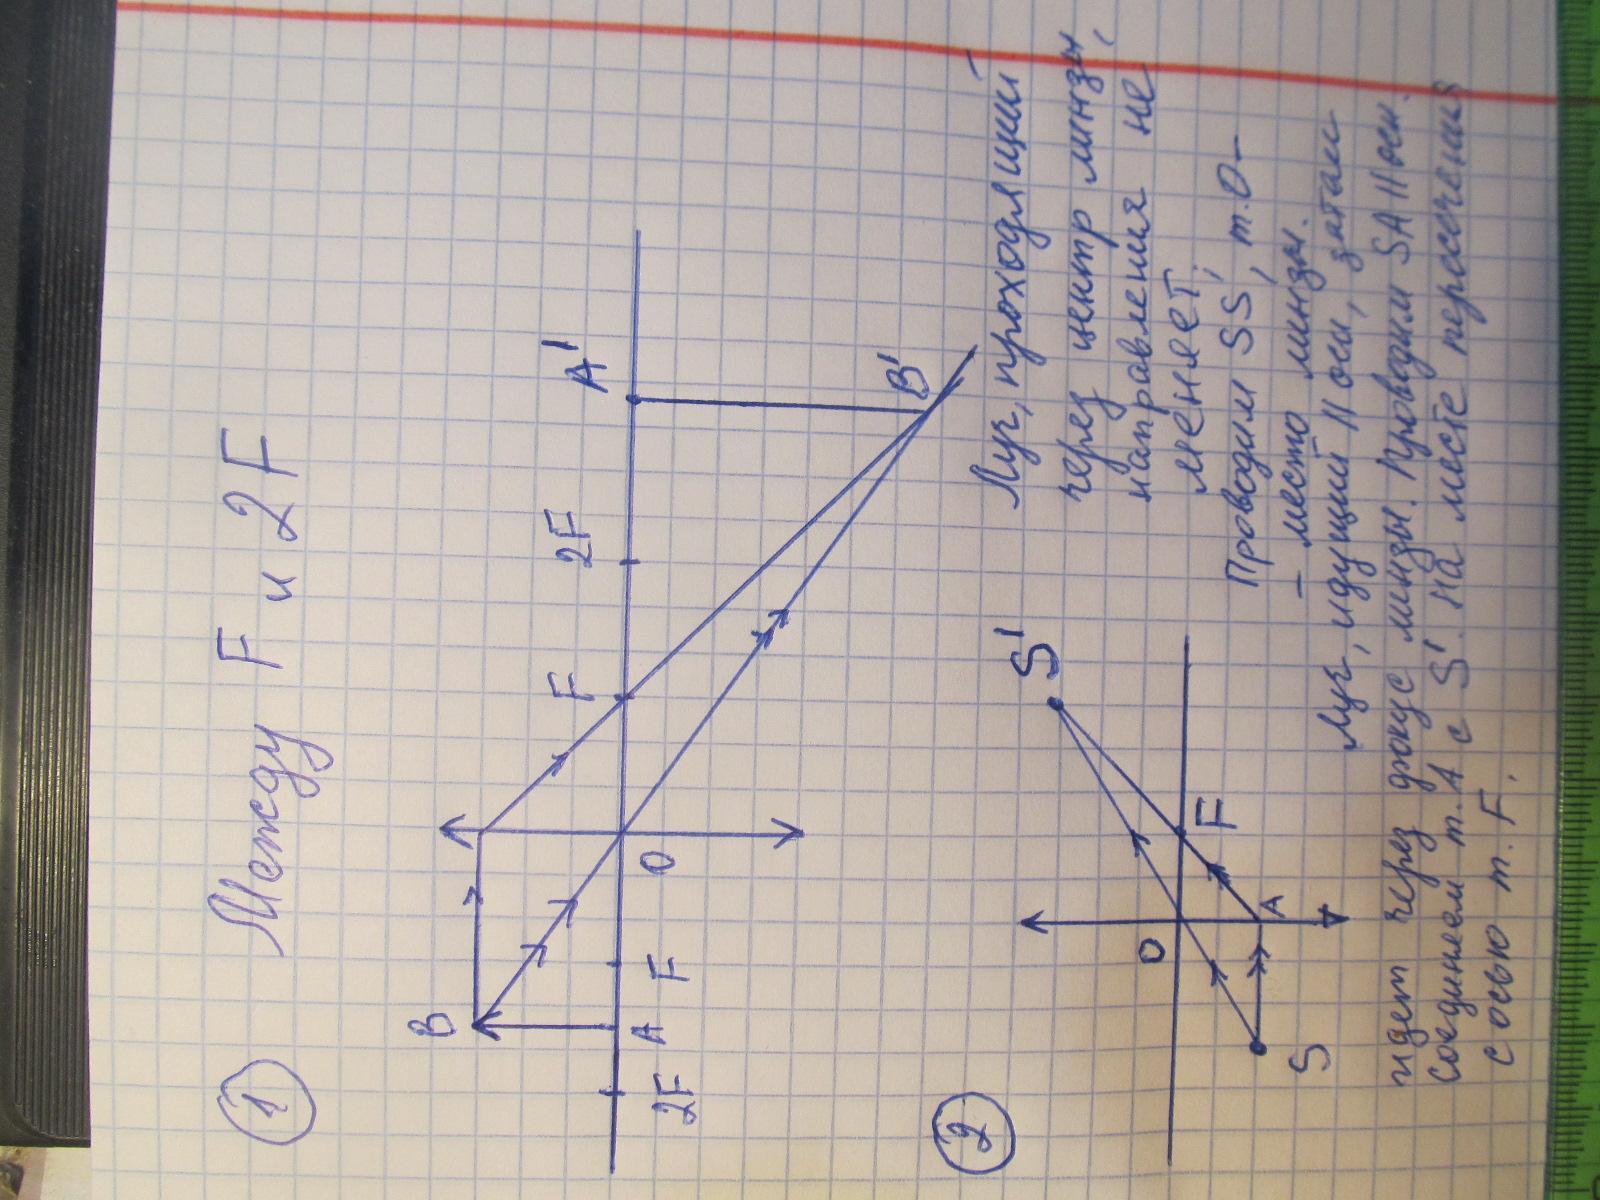 1 Между F и 2F
B
2F A F O F 2F A'
B'
2
S O A F S'
Луч, проходящий
через центр линзы,
направления не
меняет.
Проводим SS', т.О-
- место линзы.
Луч, идущий || оси, затем
идет через фокус линзы. Проводим SA || оси.
Соединяем т.А с S'. На месте пересечения
с осью т. F.